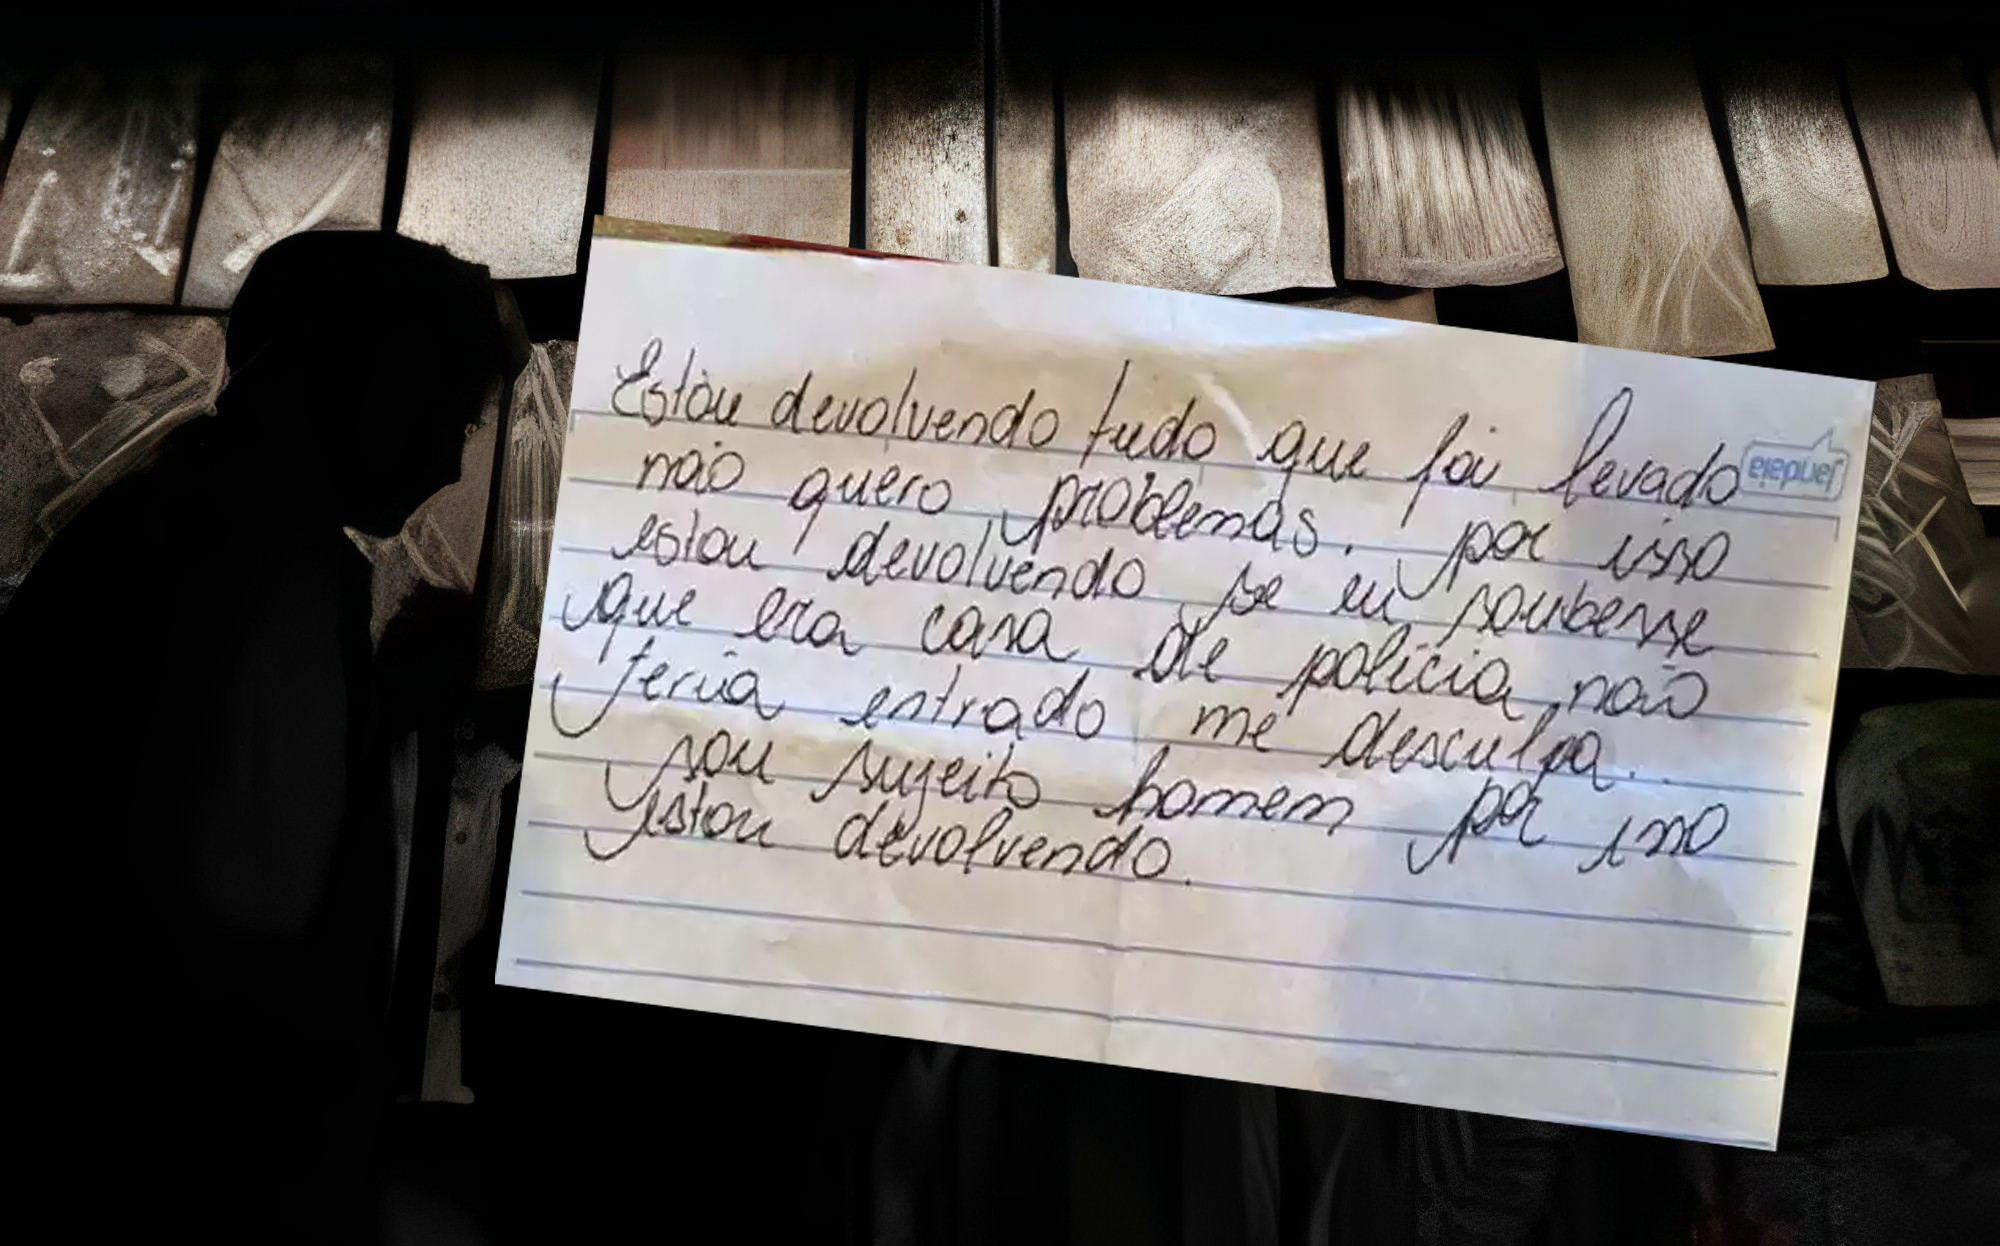 Estou devolvendo tudo que foi levado
jandaia
não quero problemas. por isso
estou devolvendo se eu soubesse
que era casa de polícia não
teria entrado me desculpa..
sou sujeito homem por isso
estou devolvendo.